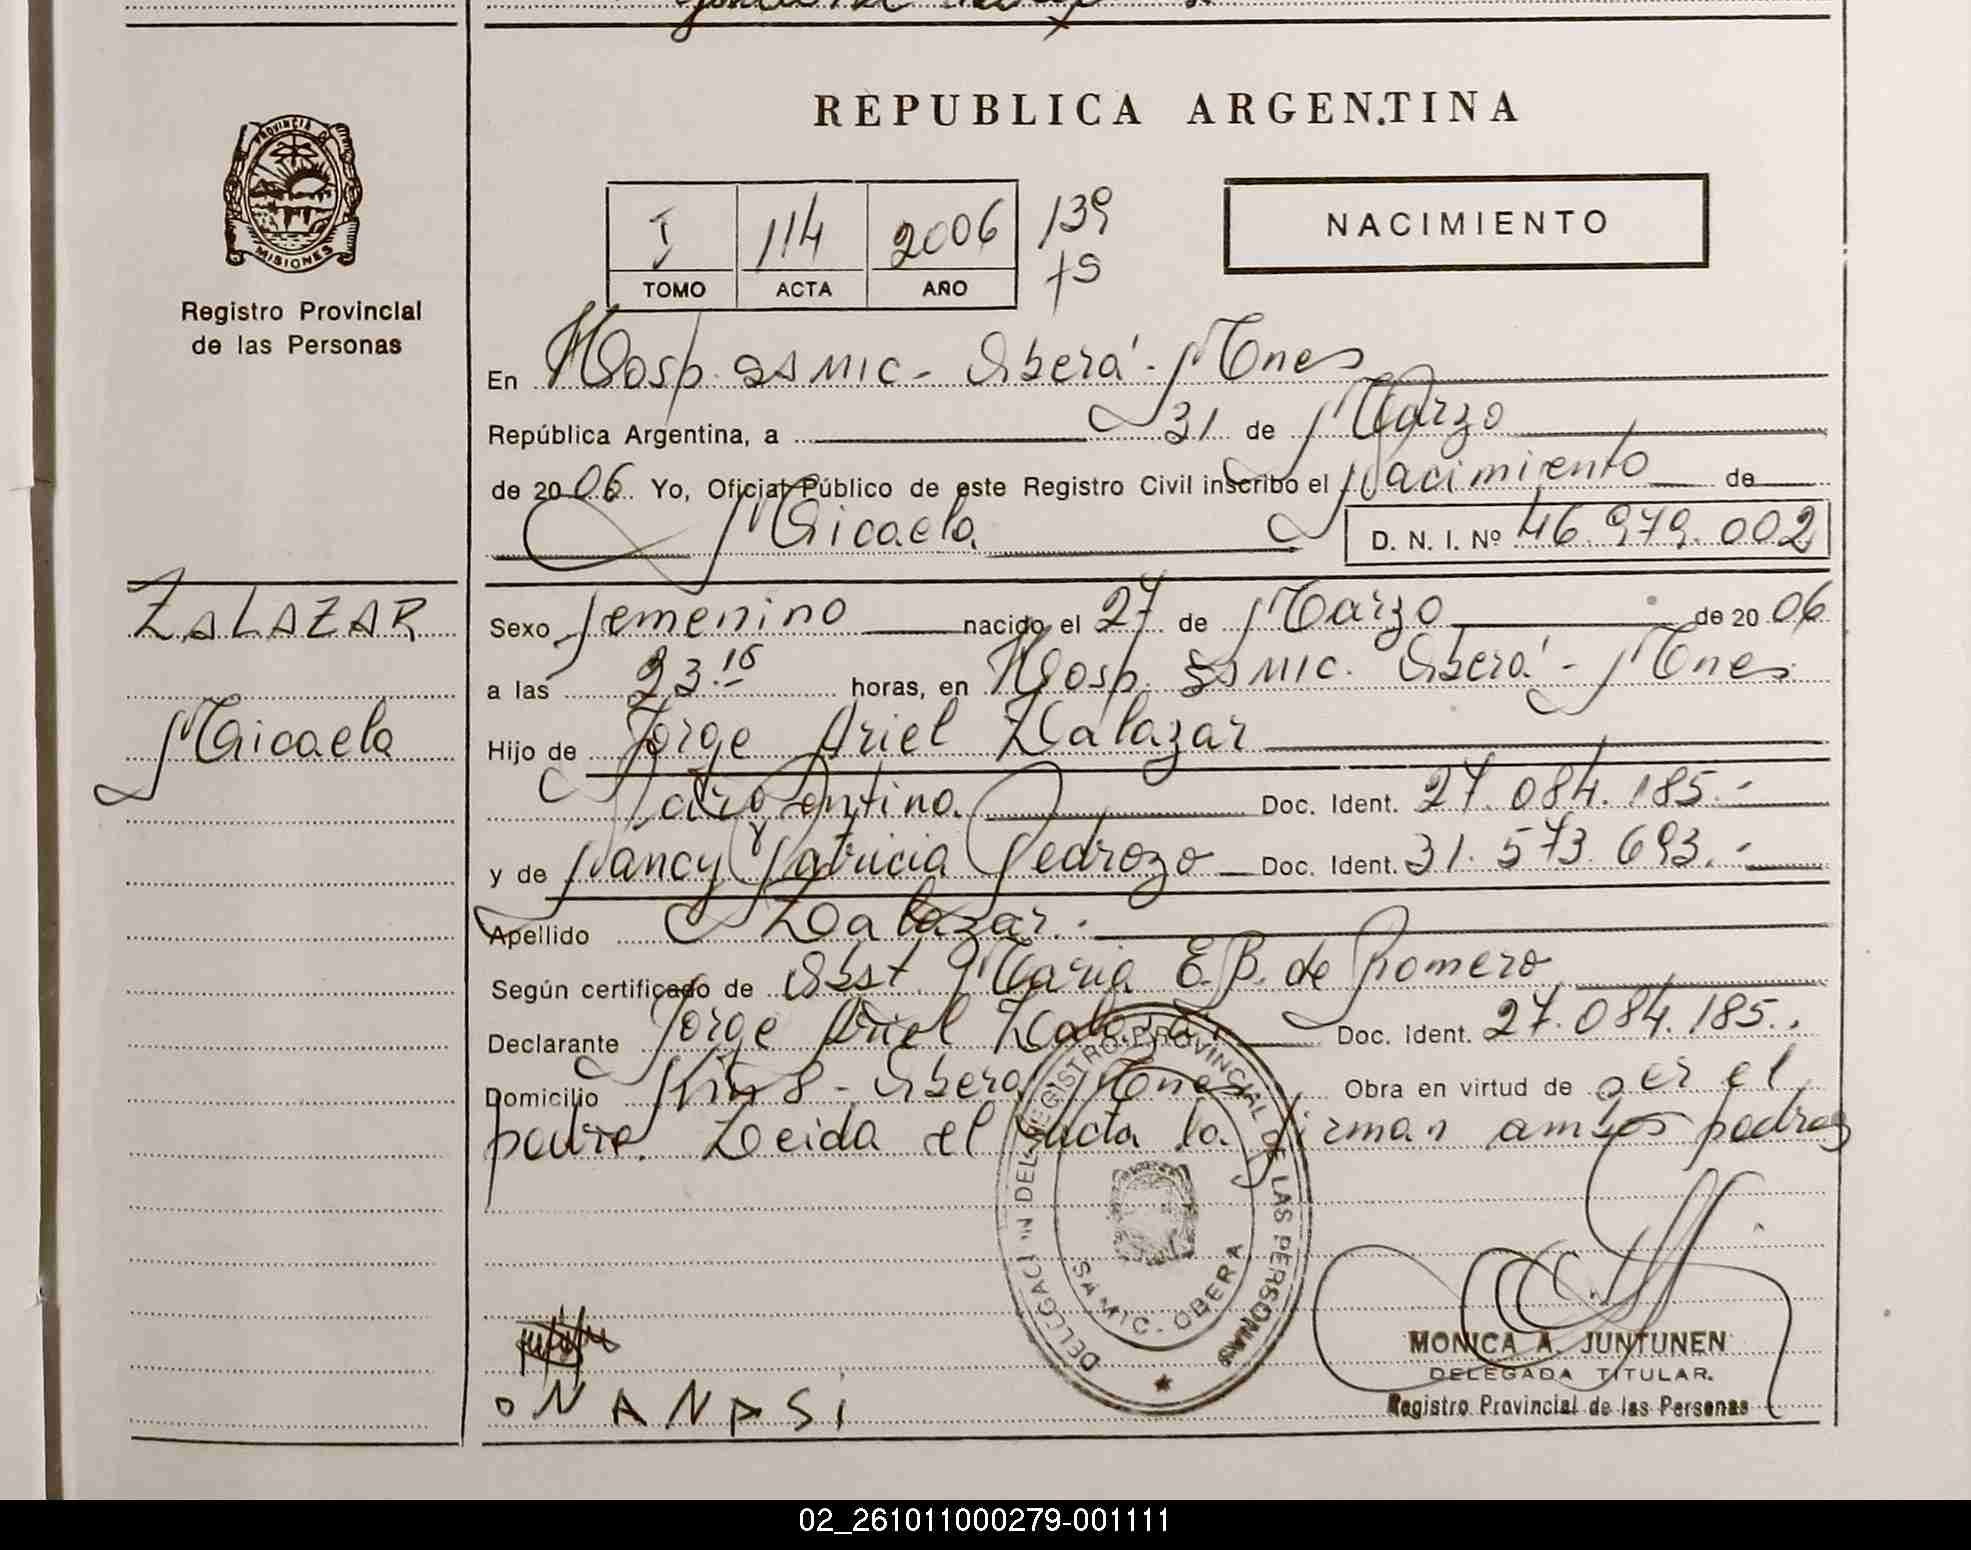 REPUBLICA ARGENTINA
PROVINCIA DE
MISIONES
Registro Provincial
de las Personas
I 114 2006 139
TOMO ACTA AÑO
NACIMIENTO
En Hosp. SAMIC - Oberá - Mnes
República Argentina, a 31 de Marzo
de 2006 Yo, Oficial Público de este Registro Civil inscribo el Nacimiento de
Micaela D. N. I. Nº 46.979.002
ZALAZAR
Micaela
Sexo femenino nacido el 27 de Marzo de 2006
a las 23.15 horas, en Hosp. SAMIC. Oberá - Mnes
Hijo de Jorge Ariel Zalazar
Argentino. Doc. Ident. 27.084.185.-
y de Nancy Patricia Pedrozo Doc. Ident. 31.573.693.-
Apellido Zalazar.-
Según certificado de Obst. Maria E. B. de Romero
Declarante Jorge Ariel Zalazar Doc. Ident. 27.084.185.
Domicilio Km 8 - Oberá Mnes Obra en virtud de ser el
padre. Leida el Acta la firman ambos padres
DELEGACION DEL REGISTRO PROVINCIAL DE LAS PERSONAS
SAMIC - OBERA
MONICA A. JUNTUNEN
DELEGADA TITULAR.
Registro Provincial de las Personas
02_261011000279-001111